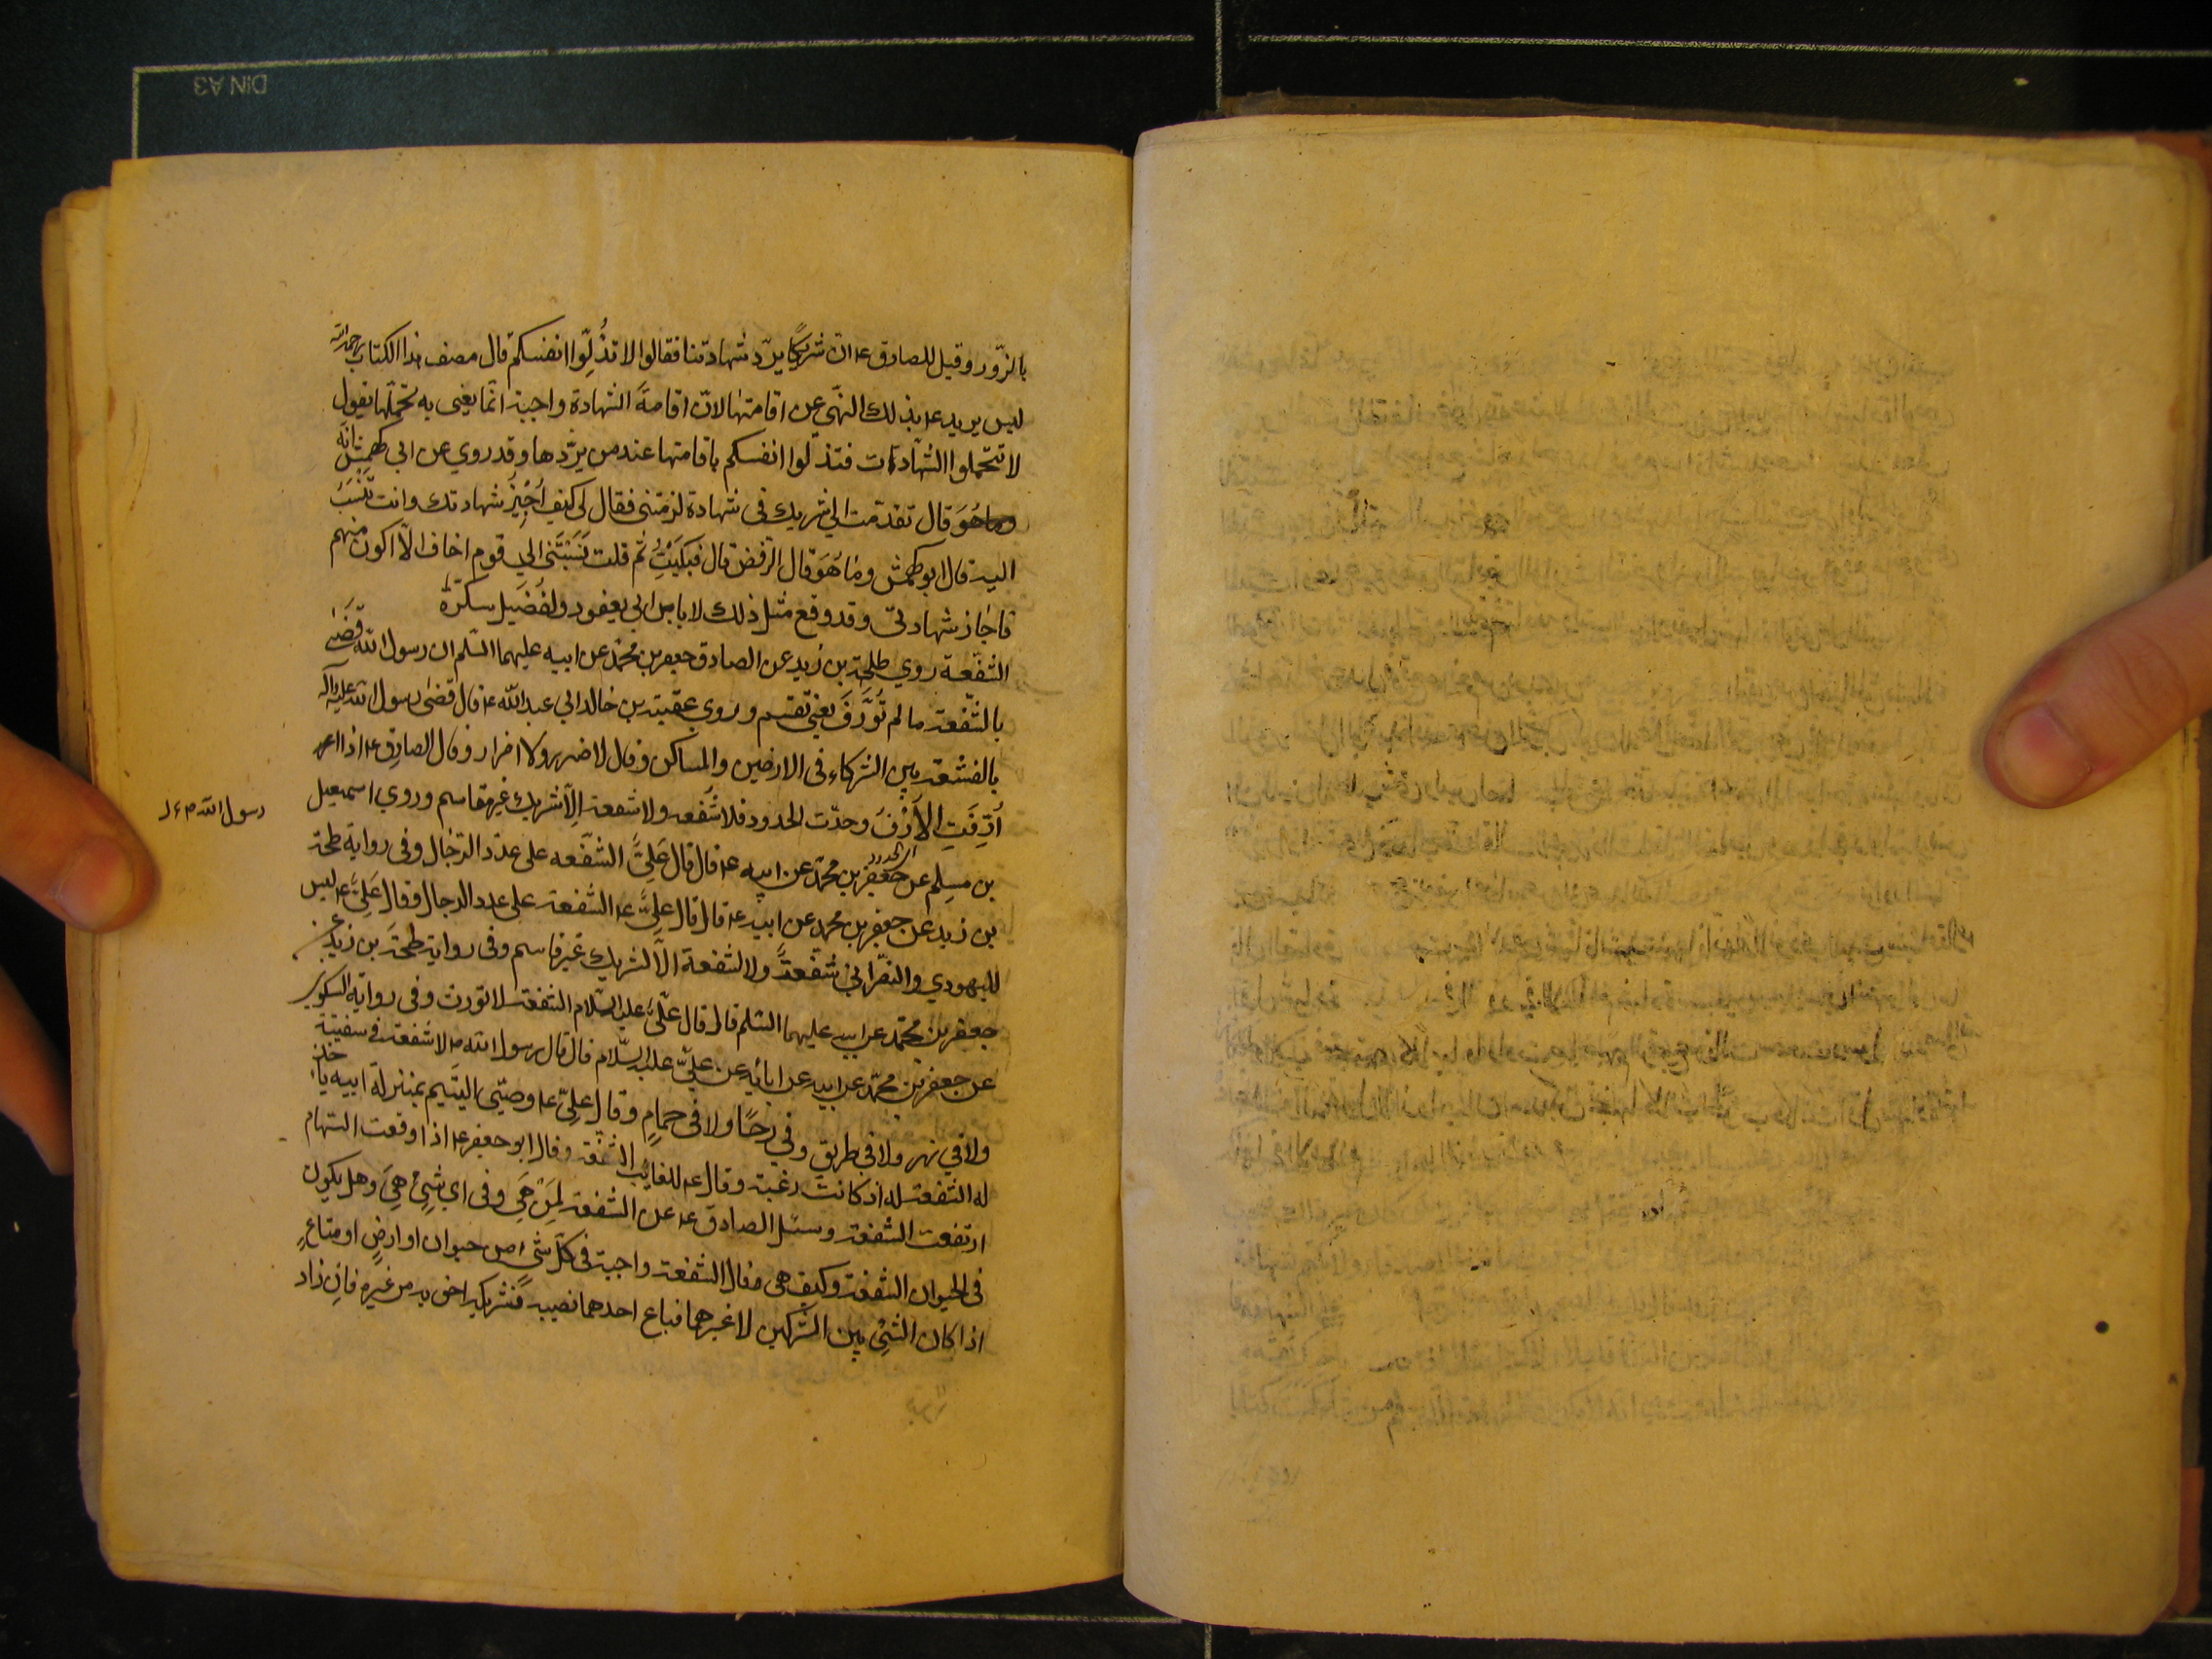 بالزّور وقيل للصادق ع ان شريكًا يردّ شهادتنا فقالوا لا تذُلِّوا انفسكم قال مصنف هذا الكتاب رحمه الله
ليس يريد ع بذلك النهي عن اقامتها لانّ اقامةَ الشهادة واجبة انّما يعنى به تحمّلها يقول
لا تتحملوا الشهادات فتذلّوا انفسكم باقامتها عند من يردّها وقد روي عن ابي كهمش انّه
قال تقدمت الى شريك فى شهادة لزمتنى فقال لى كيف اُجيزُ شهادتك وانت تُنْسَبُ
اليه قال ابو كهمش وما هَوَ قال الرفض قال فبكَيْتُ ثم قلت نَسَبْتَنى الي قوم اخاف الّا اكون منهم
فاجاز شهادتى وقد وقع مثل ذلك لابا من ابي يعفور ولفُضَيل سكرة
الشفعة روي طلحة بن زيد عن الصادق جعفر بن محمّد عن ابيه عليهما السّلم ان رسول الله قضَى
بالشّفعة ما لم تُوَّرفَ يعنى تقسم وروي عقبة بن خالد ابي عبد الله ع قال قضى رسول الله عليه وآله
بالفشعة بين الشركاء فى الارضين والمساكن وقال لا ضرر ولا اضرار وقال الصادق ع اذا
اُرِّفَتِ الاُرَفُ وحدّت الحدود فلا شفعه ولا شفعة الّا لشريك غير مقاسم وروي اسمعيل
رسول الله
الحدود
بن مسلم عن جعفر بن محمّد عن ابيه ع قال قال عَلِيَّ الشفعه على عدد الرّجال وفى رواية طلحة
بن زيد عن جعفر بن محمد عن ابيه ع قال قال عليَّ ع الشفعة على عدد الرجال وقال عَلِيَّ ع ليس
لليهودي والنصرانى شفعةً ولا الشفعة الّا لشريك غير قاسم وفى رواية طلحةَ بن زيد عن
جعفر بن محمّد عن ابيه عليهما السّلم قال قال عليّ عليه السّلام الشفعة لا تورث وفى رواية السكونى
عن جعفر بن محمّد عن ابيه عن ابائه عن عليّ عليه السّلام قال قال رسول الله لا شفعة فى سفينة
ولا في نهر ولا في طريق وفي رحًا ولا فى حمامٍ وقال علِيّ ع وصيّى اليتيم بمنزلة ابيه ياخذ
له الشفعة له اذ كانت رغبة وقال ع للغايب الشفعة وقال ابو جعفر ع اذا وقعت السّهام
ارتفعت الشفعة وسئل الصادق ع عن الشفعة لِمَنْ هَي وفى اي شيْء هِيَ وهل يكون
فى الحيوان الشفعة وكيف هى فقال الشفعة واجبة فى كلّ شىء من حيوان او ارضٍ او متاعٍ
اذا كان الشئ بين الشركين لا غيرهما فباع احدهما نصيبه فشريكه احق به من غيره فان زاد